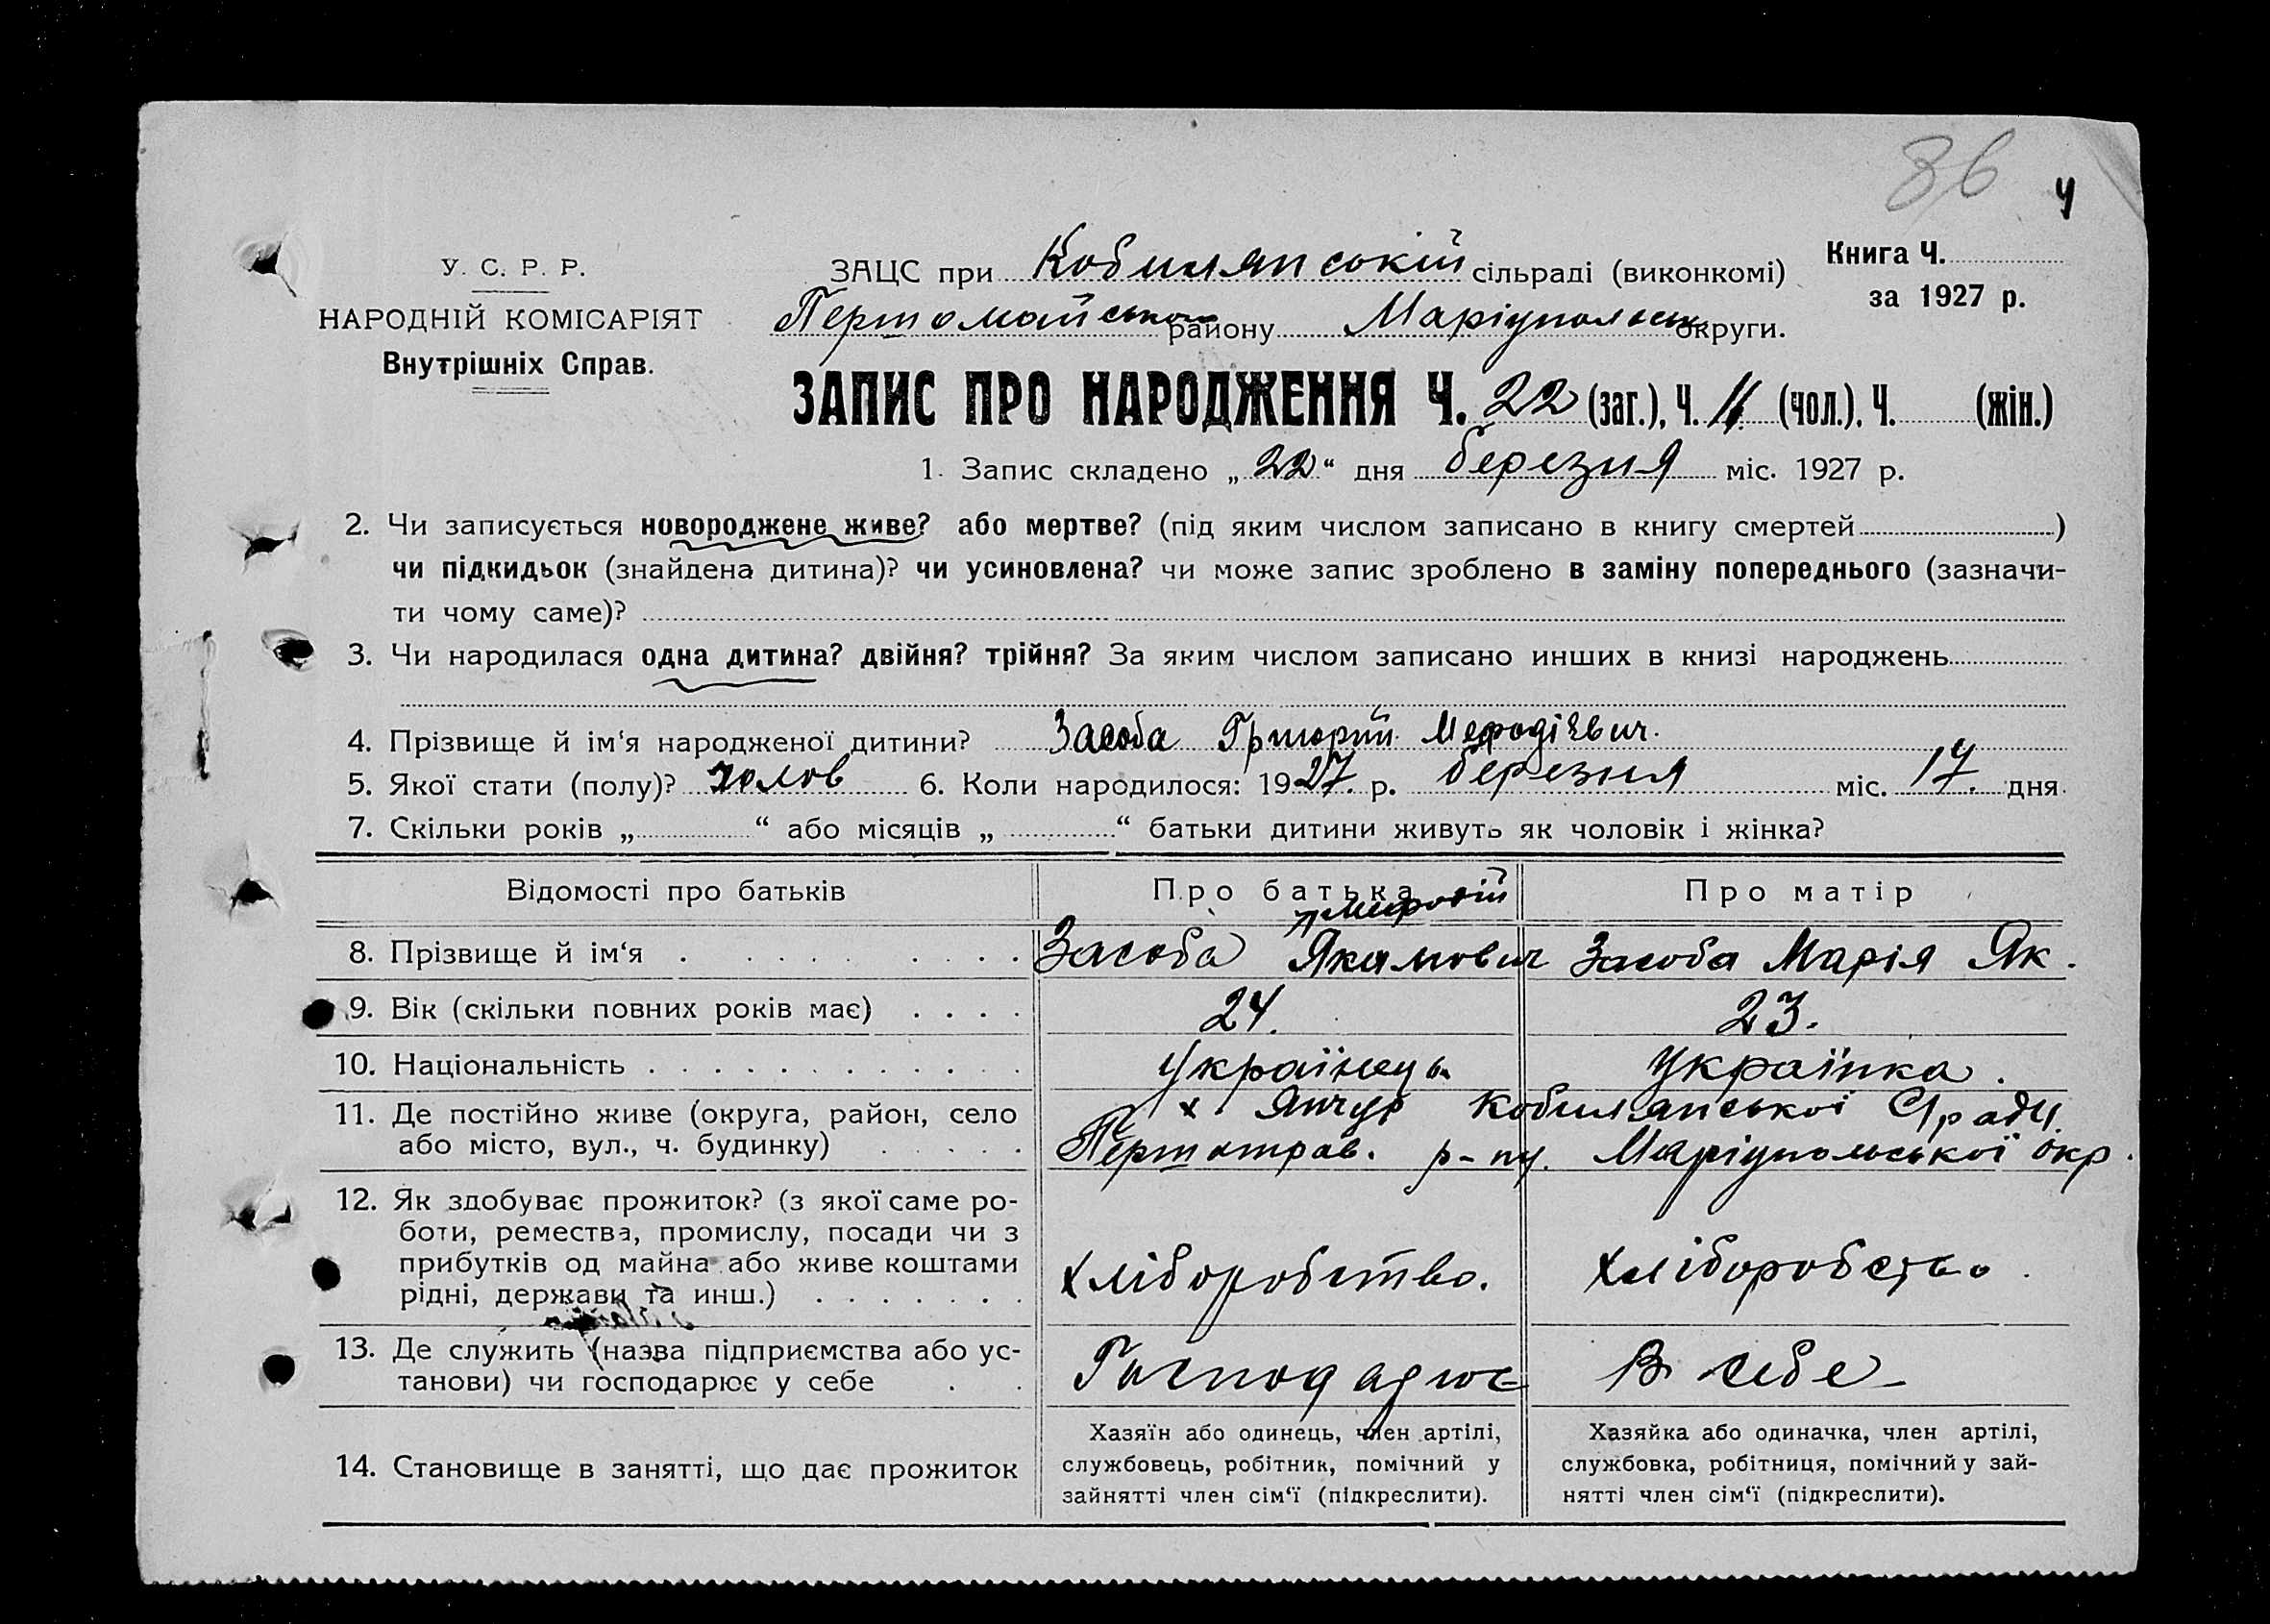 86 4
У. С. Р. Р.
НАРОДНІЙ КОМІСАРІЯТ
Внутрішніх Справ.
ЗАЦС при Кобилянській сільраді (виконкомі)
Книга Ч.
за 1927 р.
Першомайського району Маріупольськ округи.
ЗАПИС ПРО НАРОДЖЕННЯ Ч. 22 (заг.), Ч. 11 (чол.), Ч. (жін.)
1. Запис складено „22“ дня березня міс. 1927 р.
2. Чи записується новороджене живе? або мертве? (під яким числом записано в книгу смертей )
чи підкидьок (знайдена дитина)? чи усиновлена? чи може запис зроблено в заміну попереднього (зазначи-
ти чому саме)?
3. Чи народилася одна дитина? двійня? трійня? За яким числом записано инших в книзі народжень
4. Прізвище й ім‘я народженої дитини? Засоба Григорій Мефодієвич.
5. Якої стати (полу)? чолов 6. Коли народилося: 1927. р. березня міс. 17. дня
7. Скільки років „ “ або місяців „ “ батьки дитини живуть як чоловік і жінка?
Відомості про батьків Про батька Про матір
Мефодій
8. Прізвище й ім‘я Засоба Якимович Засоба Марія Як.
9. Вік (скільки повних років має) 24. 23.
10. Національність Українець Українка.
11. Де постійно живе (округа, район, село х Янчур Кобилянської С/ради.
або місто, вул., ч. будинку) р-ну. Маріупольської окр.
12. Як здобуває прожиток? (з якої саме ро-
боти, ремества, промислу, посади чи з
прибутків од майна або живе коштами хліборобство. хліборобство.
рідні, держави та инш.)
13. Де служить (назва підприємства або ус- Господарює В себе
танови) чи господарює у себе
14. Становище в занятті, що дає прожиток
Хазяїн або одинець, член артілі,
службовець, робітник, помічний у
зайнятті член сім‘ї (підкреслити).
Хазяйка або одиначка, член артілі,
службовка, робітниця, помічний у зай-
нятті член сім‘ї (підкреслити).